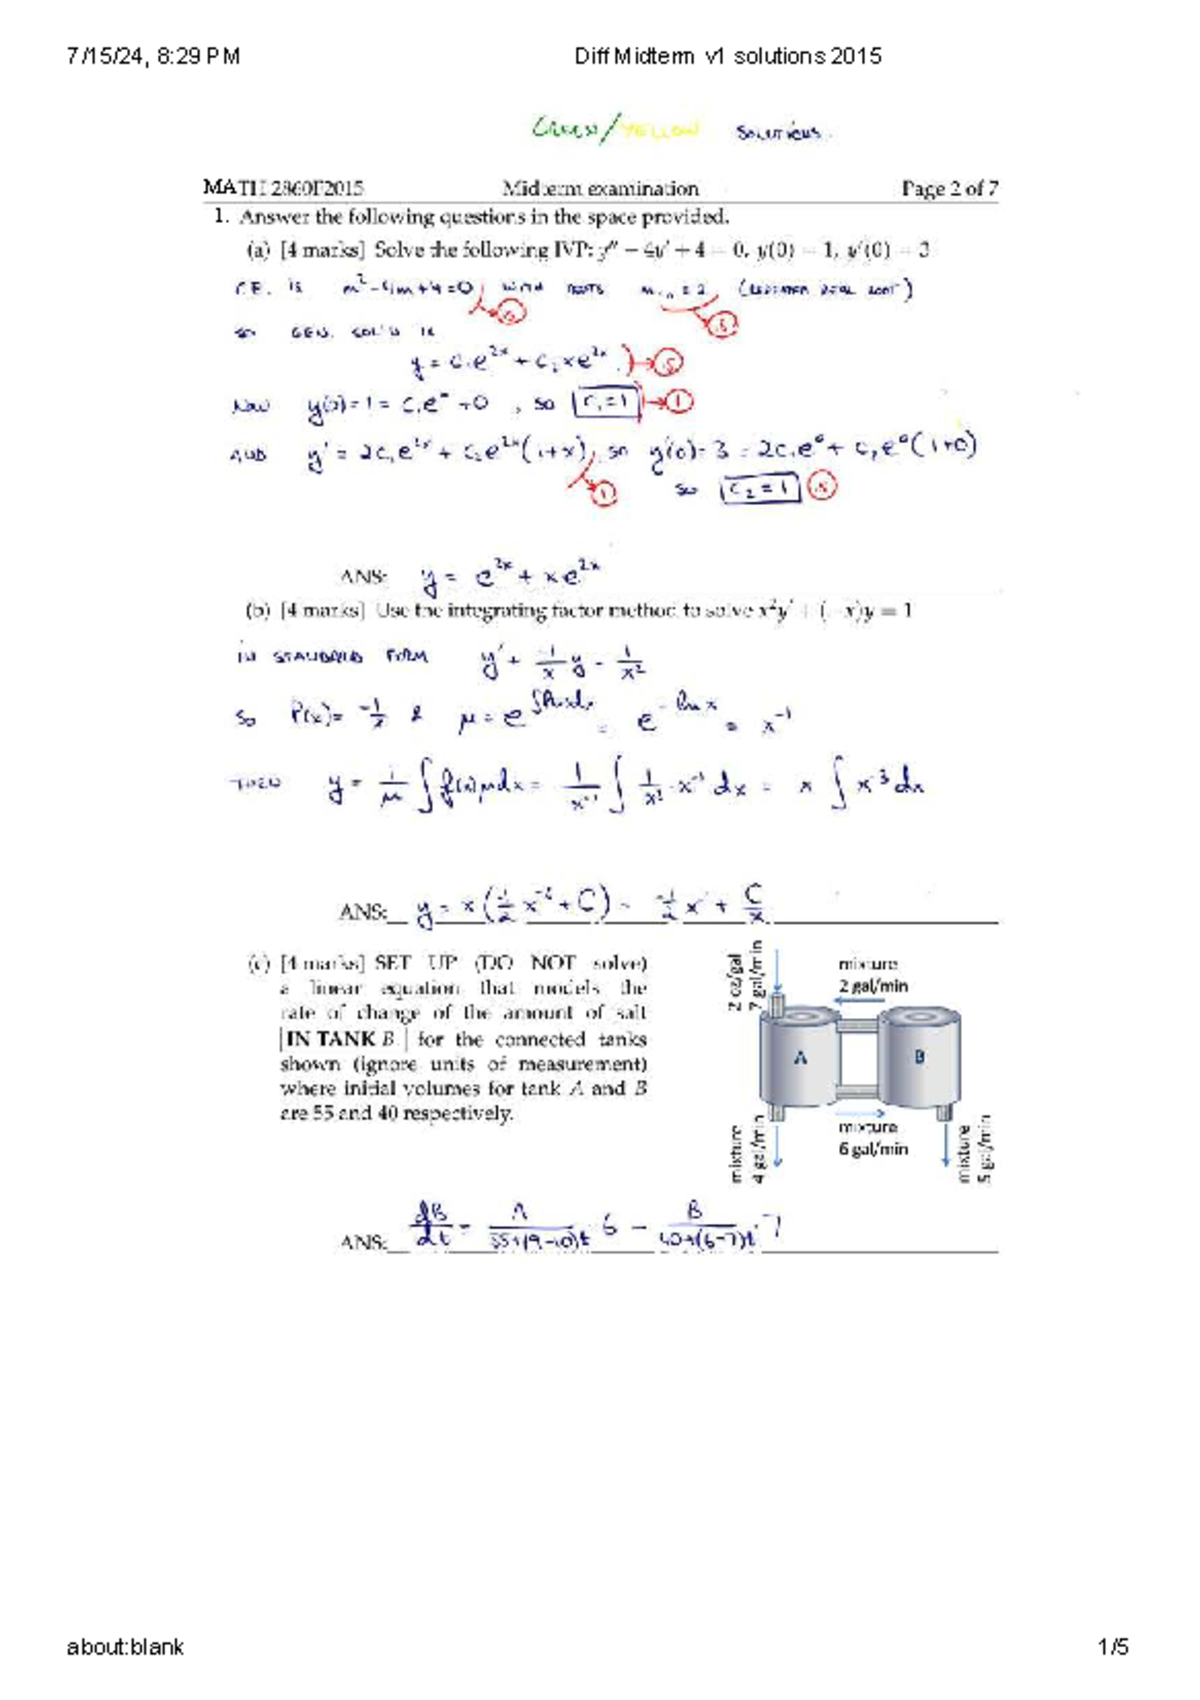 7/15/24, 8:29 PM Diff Midterm v1 solutions 2015
GREEN/YELLOW SOLUTIONS.
MATH 2860F2015 Midterm examination Page 2 of 7
1. Answer the following questions in the space provided.
(a) [4 marks] Solve the following IVP: y'' − 4y' + 4 = 0, y(0) = 1, y'(0) = 3
C.E. IS m² - 4m + 4 = 0, WITH ROOTS = 2, (REPEATED REAL ROOT)
SO GEN. SOL'N IS
y = c₁e^2x + c₂xe^2x .5
NOW y(0) = 1 = c₁e° + 0, SO c₁ = 1 1
AND y' = 2c₁e^2x + c₂e^2x(1+x), SO y'(0) = 3 = 2c₁e° + c₂e°(1+0)
1 SO c₂ = 1 .5
ANS: y = e^2x + xe^2x
(b) [4 marks] Use the integrating factor method to solve x²y' + (−x)y = 1
IN STANDARD FORM y' + -1/x y = 1/x²
SO P(x) = -1/x & μ = e^∫P(x)dx = e^-ln x = x^-1
THEN y = 1/μ ∫f(x)μdx = 1/x^-1 ∫ 1/x² · x^-1 dx = x ∫ x^-3 dx
ANS: y = x(-1/2 x^-2 + C) = -1/2 x + C/x
(c) [4 marks] SET UP (DO NOT solve)
a linear equation that models the
rate of change of the amount of salt
[IN TANK B ] for the connected tanks
shown (ignore units of measurement)
where initial volumes for tank A and B
are 55 and 40 respectively.
2 oz/gal
7 gal/min
mixture
2 gal/min
A B
mixture
6 gal/min
mixture
4 gal/min
mixture
5 gal/min
ANS: dB/dt = A/55+(9-10)t · 6 − B/40+(6-7)t · 7
about:blank 1/5